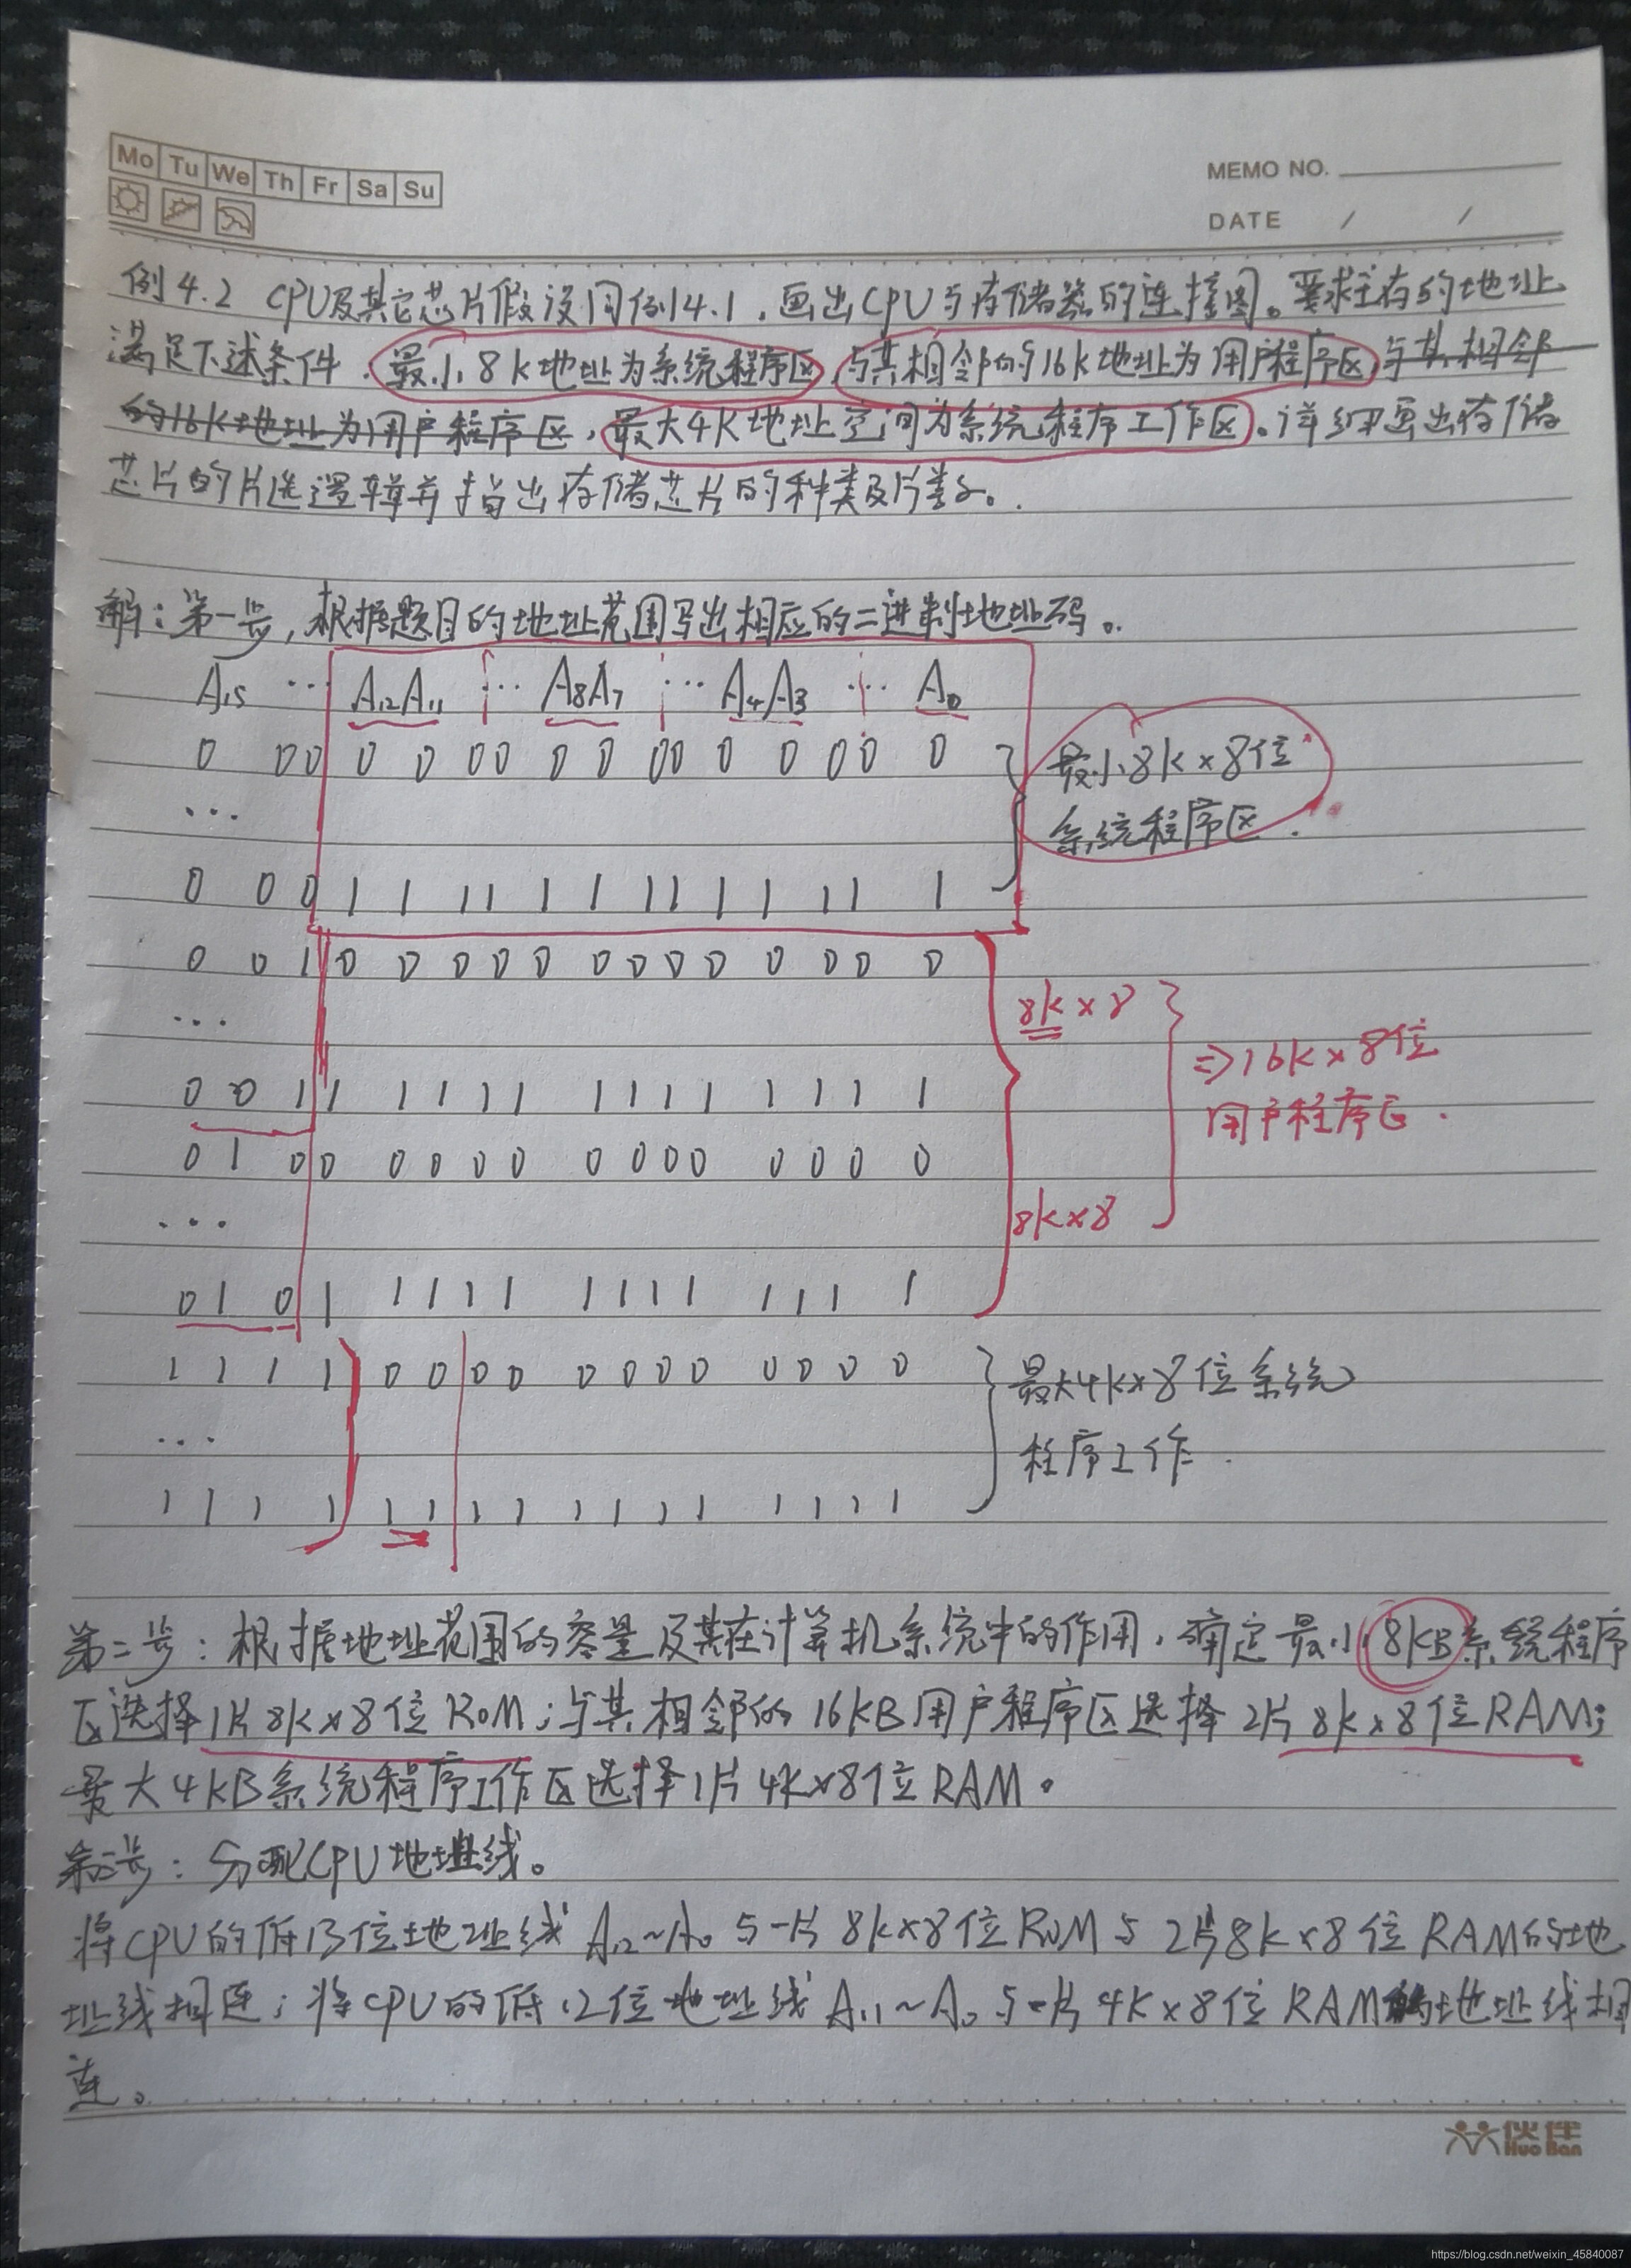 Mo Tu We Th Fr Sa Su
MEMO NO.
DATE / /
例4.2 CPU及其它芯片假设同例4.1,画出CPU与存储器的连接图。要求主存的地址
满足下述条件.最小8K地址为系统程序区,与其相邻的16K地址为用户程序区,与其相邻
的16K地址为用户程序区,最大4K地址空间为系统程序工作区。详细画出存储
芯片的片选逻辑并指出存储芯片的种类及片数。
解:第一步,根据题目的地址范围写出相应的二进制地址码。
A15 … A12A11 … A8A7 … A4A3 … A0
0 00 0 0 00 0 0 00 0 0 00 0
...
0 0 0 1 1 11 1 1 11 1 1 11 1
最小8K×8位
系统程序区.
0 0 1 0 0 0 0 0 0 0 0 0 0 0 0 0
...
0 0 1 1 1 1 1 1 1 1 1 1 1 1 1 1
8K×8
0 1 0 0 0 0 0 0 0 0 0 0 0 0 0 0
...
0 1 0 1 1 1 1 1 1 1 1 1 1 1 1 1
8K×8
⇒16K×8位
用户程序区.
1 1 1 1 0 0 0 0 0 0 0 0 0 0 0 0
...
1 1 1 1 1 1 1 1 1 1 1 1 1 1 1 1
最大4K×8位系统
程序工作.
第二步:根据地址范围的容量及其在计算机系统中的作用,确定最小8KB系统程序
区选择1片8K×8位ROM;与其相邻的16KB用户程序区选择2片8K×8位RAM;
最大4KB系统程序工作区选择1片4K×8位RAM。
第三步:分配CPU地址线。
将CPU的低13位地址线A12~A0与一片8K×8位ROM与2片8K×8位RAM的地
址线相连;将CPU的低12位地址线A11~A0与一片4K×8位RAM的地址线相
连。
伙伴
Huo Ban
https://blog.csdn.net/weixin_45840087